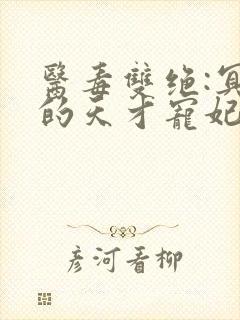 醫毒雙绝:冥
的天才寵妃
彦河看柳